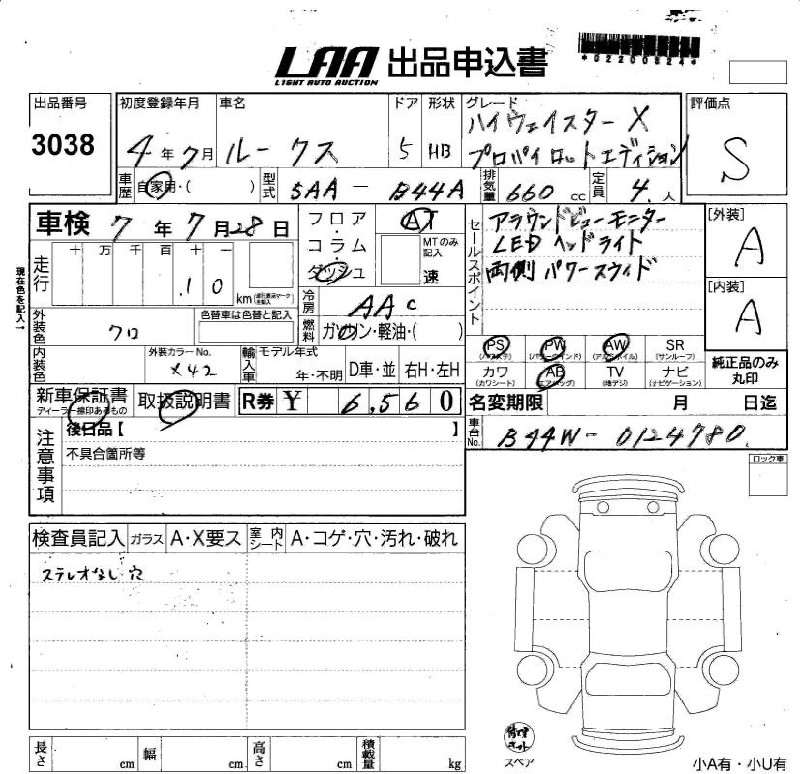 LAA 出品申込書
LIGHT AUTO AUCTION
*02200824*
出品番号
3038
初度登録年月
4年7月
車名
ルークス
ドア
5
形状
HB
グレード
ハイウェイスター X
プロパイロットエディション
評価点
S
車歴
自家用・( )
型式
5AA - B44A
排気量
660 cc
定員
4. 人
車検 7年7月28日
フロア・コラム・ダッシュ
AT
MTのみ記入
速
セールスポイント
アラウンドビューモニター
LEDヘッドライト
両側パワースライド
[外装]
A
[内装]
A
現在色を記入→
走行
十 万 千 百 十 一
.10
km
冷房
AAC
燃料
ガソリン・軽油・( )
外装色
クロ
色替車は色替と記入
内装色
外装カラーNo.
X42
輸入車
モデル年式
年・不明
D車・並
右H・左H
PS (パワステ)
PW (パワーウインド)
AW (アルミホイル)
SR (サンルーフ)
カワ (カワシート)
AB (エアバッグ)
TV (地デジ)
ナビ (ナビゲーション)
純正品のみ丸印
新車保証書
ディーラー捺印あるもの
取扱説明書
R券 ¥ 6,560
名変期限 月 日迄
注意事項
後日品【 】
不具合箇所等
車台No.
B44W-0124780
ロック車
検査員記入
ガラス
A・X要ス
室内シート
A・コゲ・穴・汚れ・破れ
ステレオなし穴
長さ cm
幅 cm
高さ cm
積載量 kg
スペア
小A有・小U有